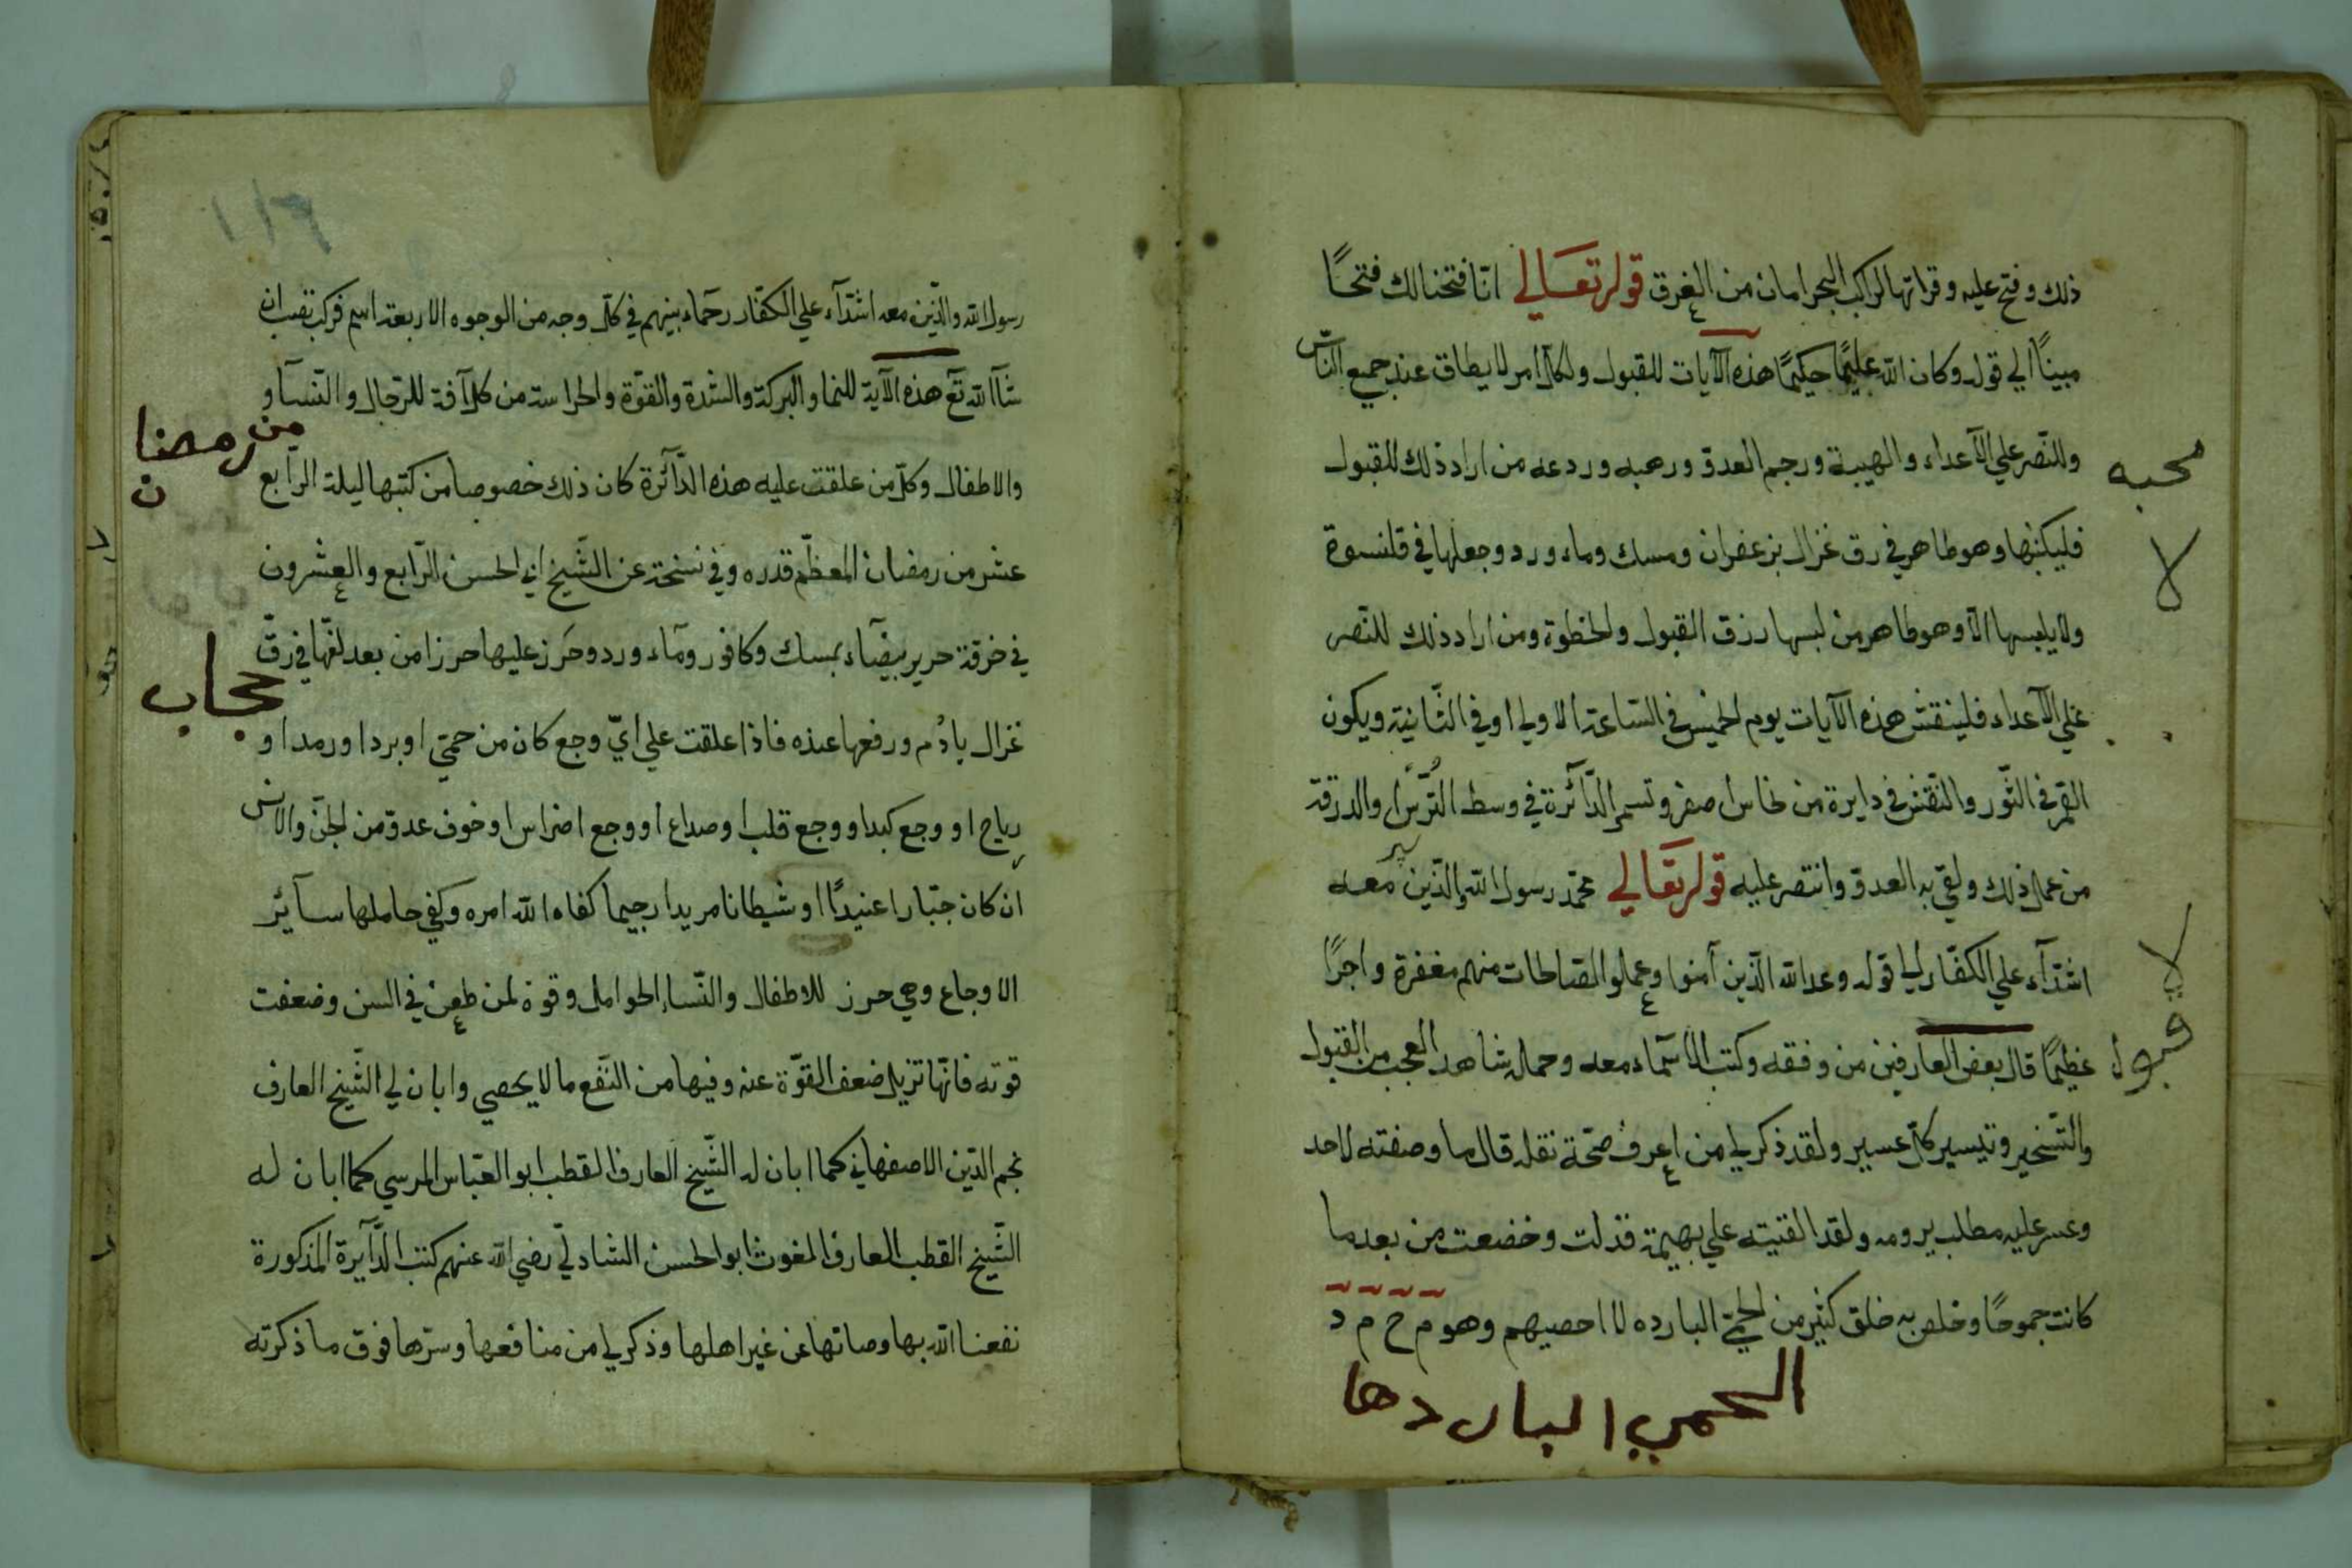 ذلك وفتح عليه وقراتها لراكب البحر امان من الغرق قوله تعالي انّا فتحنا لك فتحًا
مبينًا الي قوله وكان الله عليمًا حكيمًا هذه الآيات للقبول ولكل امر لا يطاق عند جميع الناس
وللنّصر علي الآعداء والهيبة ورجم العدوّ ورهبه وردعه من اراد ذلك للقبول
محبه
فليكتبها وهو طاهر في رق غزال بزعفران ومسك وماء ورد وجعلها في قلنسوة
لا
ولا يلبسها الّا وهو طاهر من لبسها رزق القبول والحظوة ومن اراد ذلك للنّصر
علي الآعداء فلينقش هذه الآيات يوم الخميس في السّاعة الاولي او في الثّانية ويكون
القمر في الثّور والنّقش في دايرة من نحاس اصفر وتسمر الدّآئرة في وسط التُّرس والدرقة
من عمل ذلك ولقي به العدوّ وانتصر عليه قوله تعَالي محمّد رسول الله والذّين معه
اشدّآء علي الكفّار الي قوله وعد الله الّذين آمنوا وعملوا الصّالحات منهم مغفرة واجرًا
لا
عظيمًا قال بعض العارفين من وفقه وكتب الاسمآء معه وحمله شاهد العجب من القبول
قبول
والتّسخير وتيسير كلّ عسير ولقد ذكر لي من اعرف صحّة نقله قال ما وصفته لاحد
وعسر عليه مطلب يرومه ولقد القيته علي بهيمة فذلت وخضعت من بعد ما
كانت جموحًا وخلص به خلق كثير من الحمّي البارده لا احصيهم وهو م ح م د
الحمي البارده‍ا
رسول الله والّذين معه اشدّآء علي الكفّار رحمآء بينهم في كلّ وجه من الوجوه الاربعة اسم فركب تصب ان
شآ الله تع هذه الآية للنما والبركة والشدة والقوّة والحراسة من كل آفة للرّجال والنّسآ و
من رمضان
والاطفال وكلّ من علقت عليه هذه الدّآئرة كان ذلك خصوصا من كتبها ليلة الرّابع
عشر من رمضان المعظّم قدره وفي نسخة عن الشّيخ ابي الحسن الرّابع والعشرون
في خرقة حرير بيضآء بمسك وكافور ومآء ورد وحَرز عليها حرزا من بعد لفّها في رقّ
حجاب
غزال بادُم ورفعها عنده فاذا علقت علي ايّ وجع كان من حمّي او برد او رمد او
رياح او وجع كبد او وجع قلب او صداع او وجع اضراس او خوف عدوّ من الجنّ والانس
ان كان جبّارا عنيدًا او شيطانا مريدا رجيما كفاه الله امره وكفي حاملها سآئر
الاوجاع وهي حرز للاطفال والنّساء الحوامل وقوة لمن طعن في السن وضعفت
قوته فانّها تزيل ضعف القوّة عنه وفيها من النّفع ما لا يحصي وابان لي الشّيخ العارف
نجم الدّين الاصفهاني كما ابان له الشّيخ العارف القطب ابو العبّاس المرسي كما ابان له
الشّيخ القطب العارف الغوث ابو الحسن الشاذلي رضي الله عنهم كتب الدّآيرة المذكورة
نفعنا الله بها وصانها عن غير اهلها وذكر لي من منافعها وسرّها فوق ما ذكرته